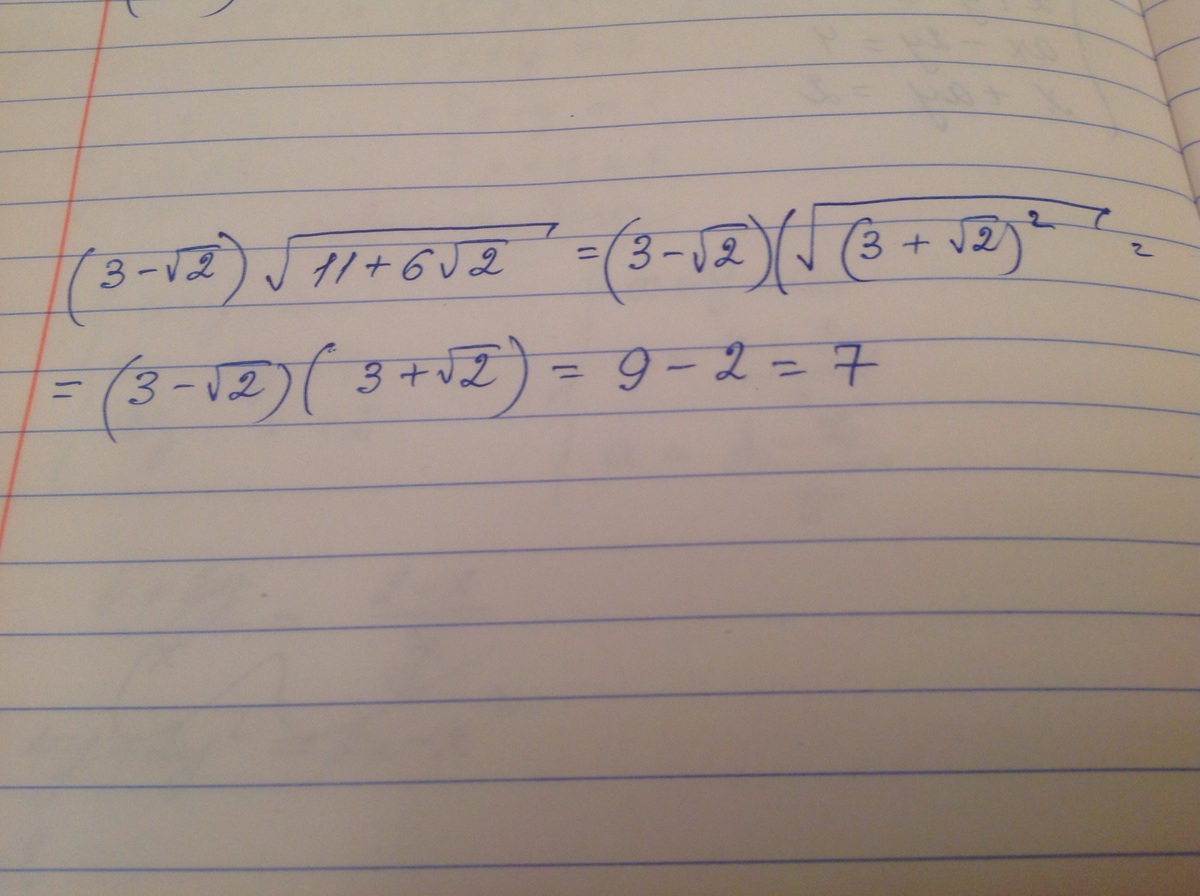 (3-√2)√(11+6√2) =(3-√2)(√(3+√2)² =
= (3-√2)( 3+√2) = 9-2 = 7